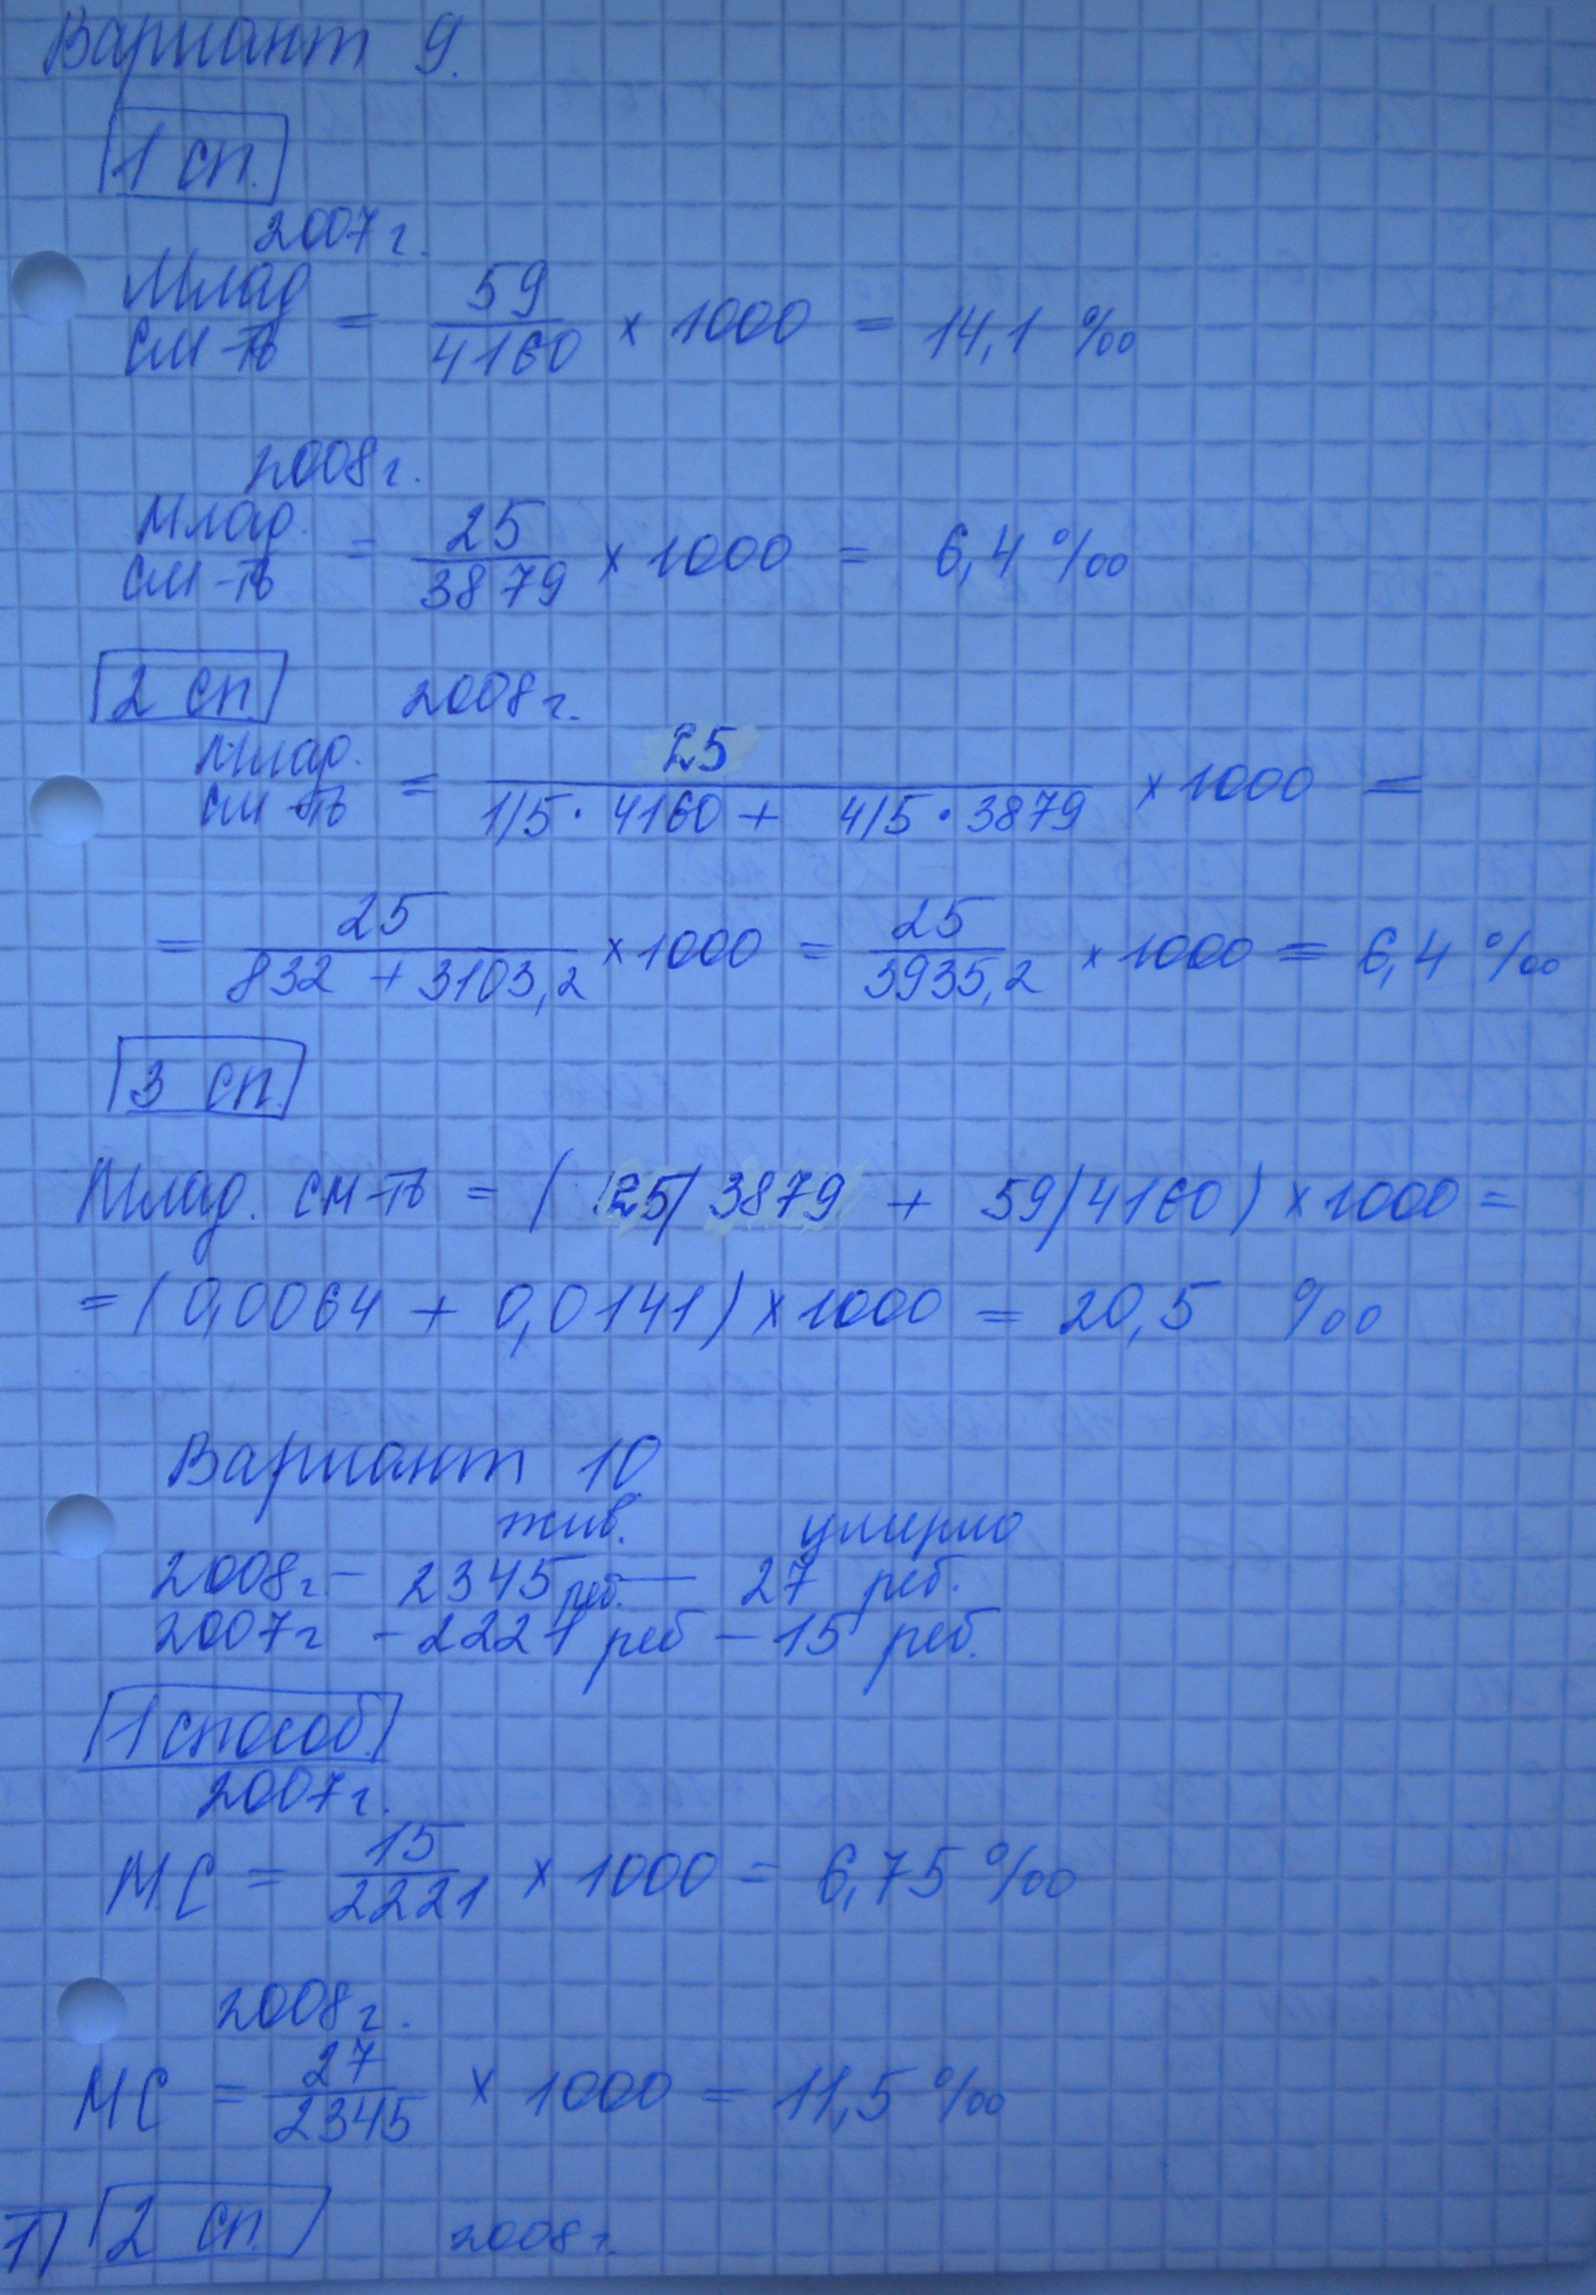 Вариант 9.
1 сп.
2007г.
Млад
см-ть = 59/4160 × 1000 = 14,1 ‰
2008г.
Млад.
см-ть = 25/3879 × 1000 = 6,4 ‰
2 сп. 2008г.
Млад.
см-ть = 25/(1/5 · 4160 + 4/5 · 3879) × 1000 =
= 25/(832 + 3103,2) × 1000 = 25/3935,2 × 1000 = 6,4 ‰
3 сп.
Млад. см-ть = (25/3879 + 59/4160) × 1000 =
= (0,0064 + 0,0141) × 1000 = 20,5 ‰
Вариант 10
жив. умерло
2008г – 2345 реб. — 27 реб.
2007г – 2221 реб – 15 реб.
1 способ
2007г.
МС = 15/2221 × 1000 = 6,75 ‰
2008г.
МС = 27/2345 × 1000 = 11,5 ‰
1) 2 сп. 2008г.